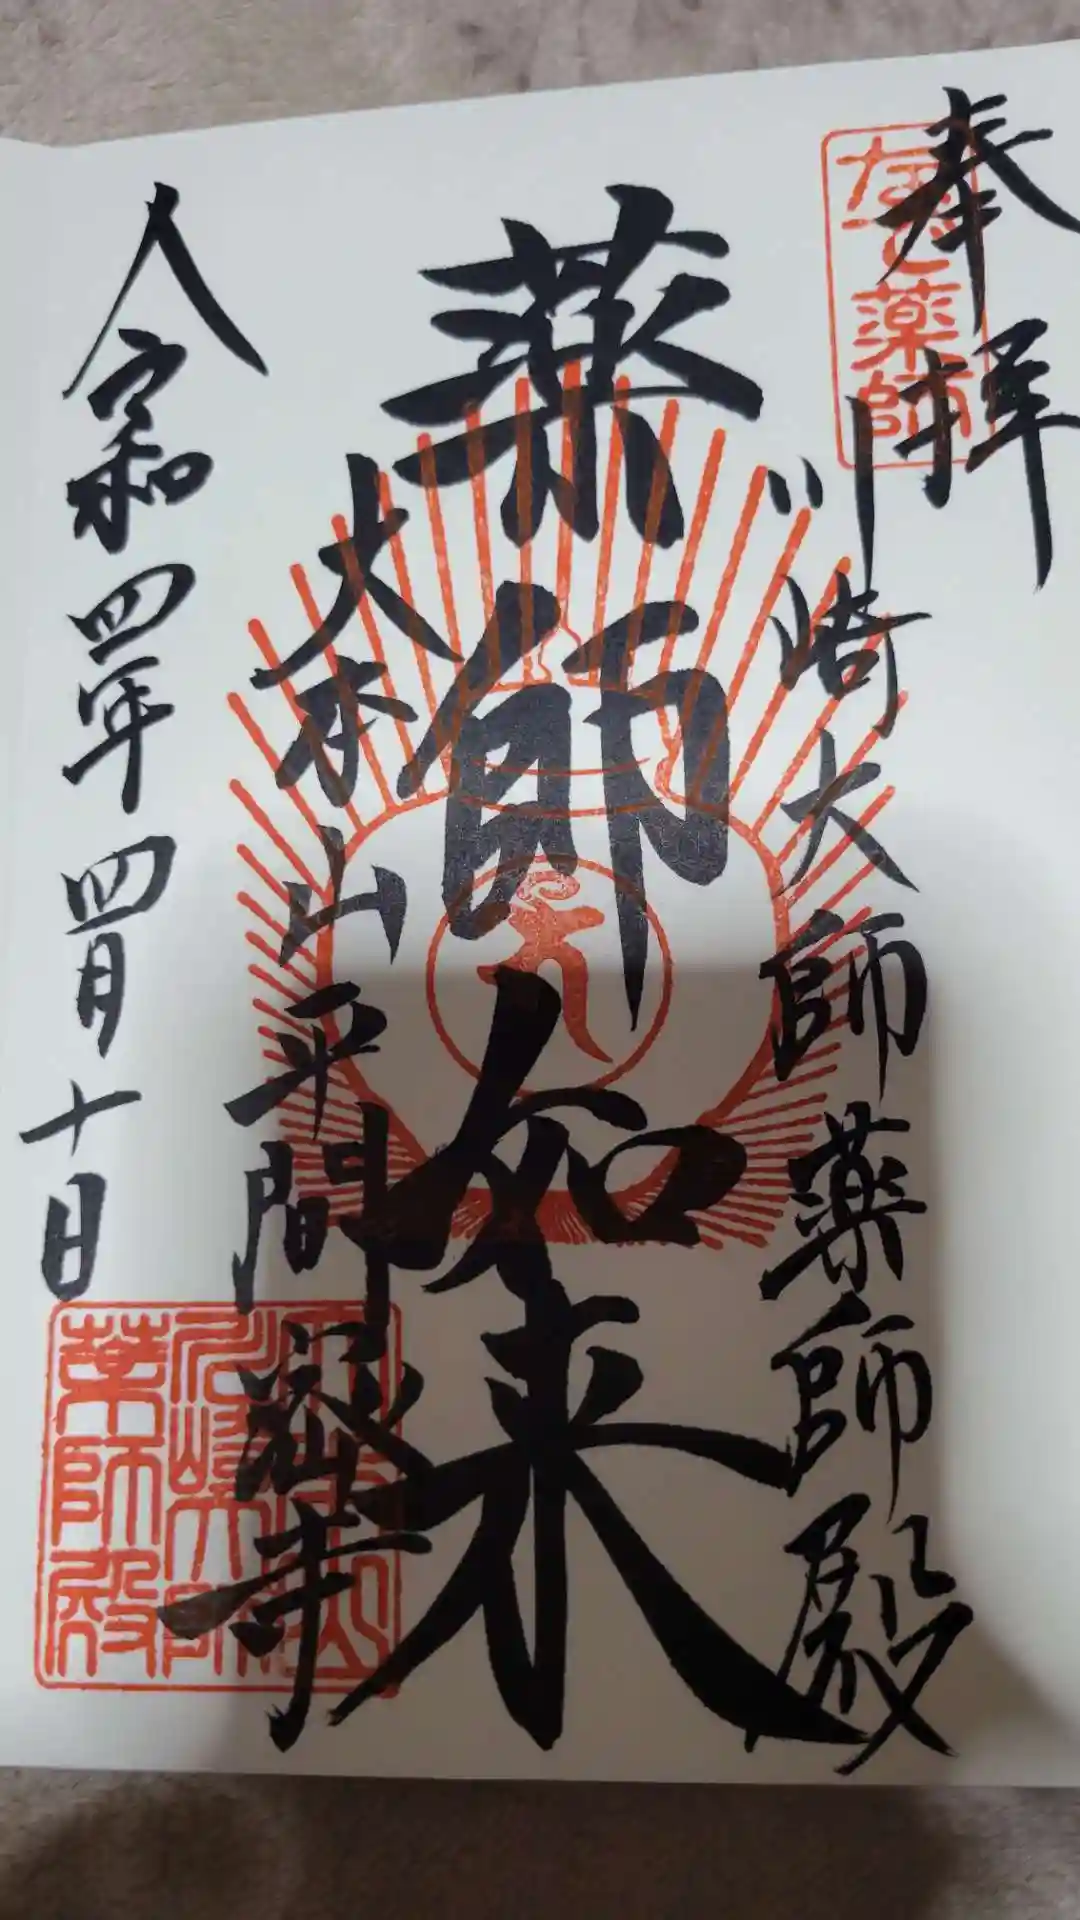 奉拝
なで薬師
川崎大師薬師殿
薬師如来
大本山平間寺
令和四年四月十日
川崎大師
薬師殿